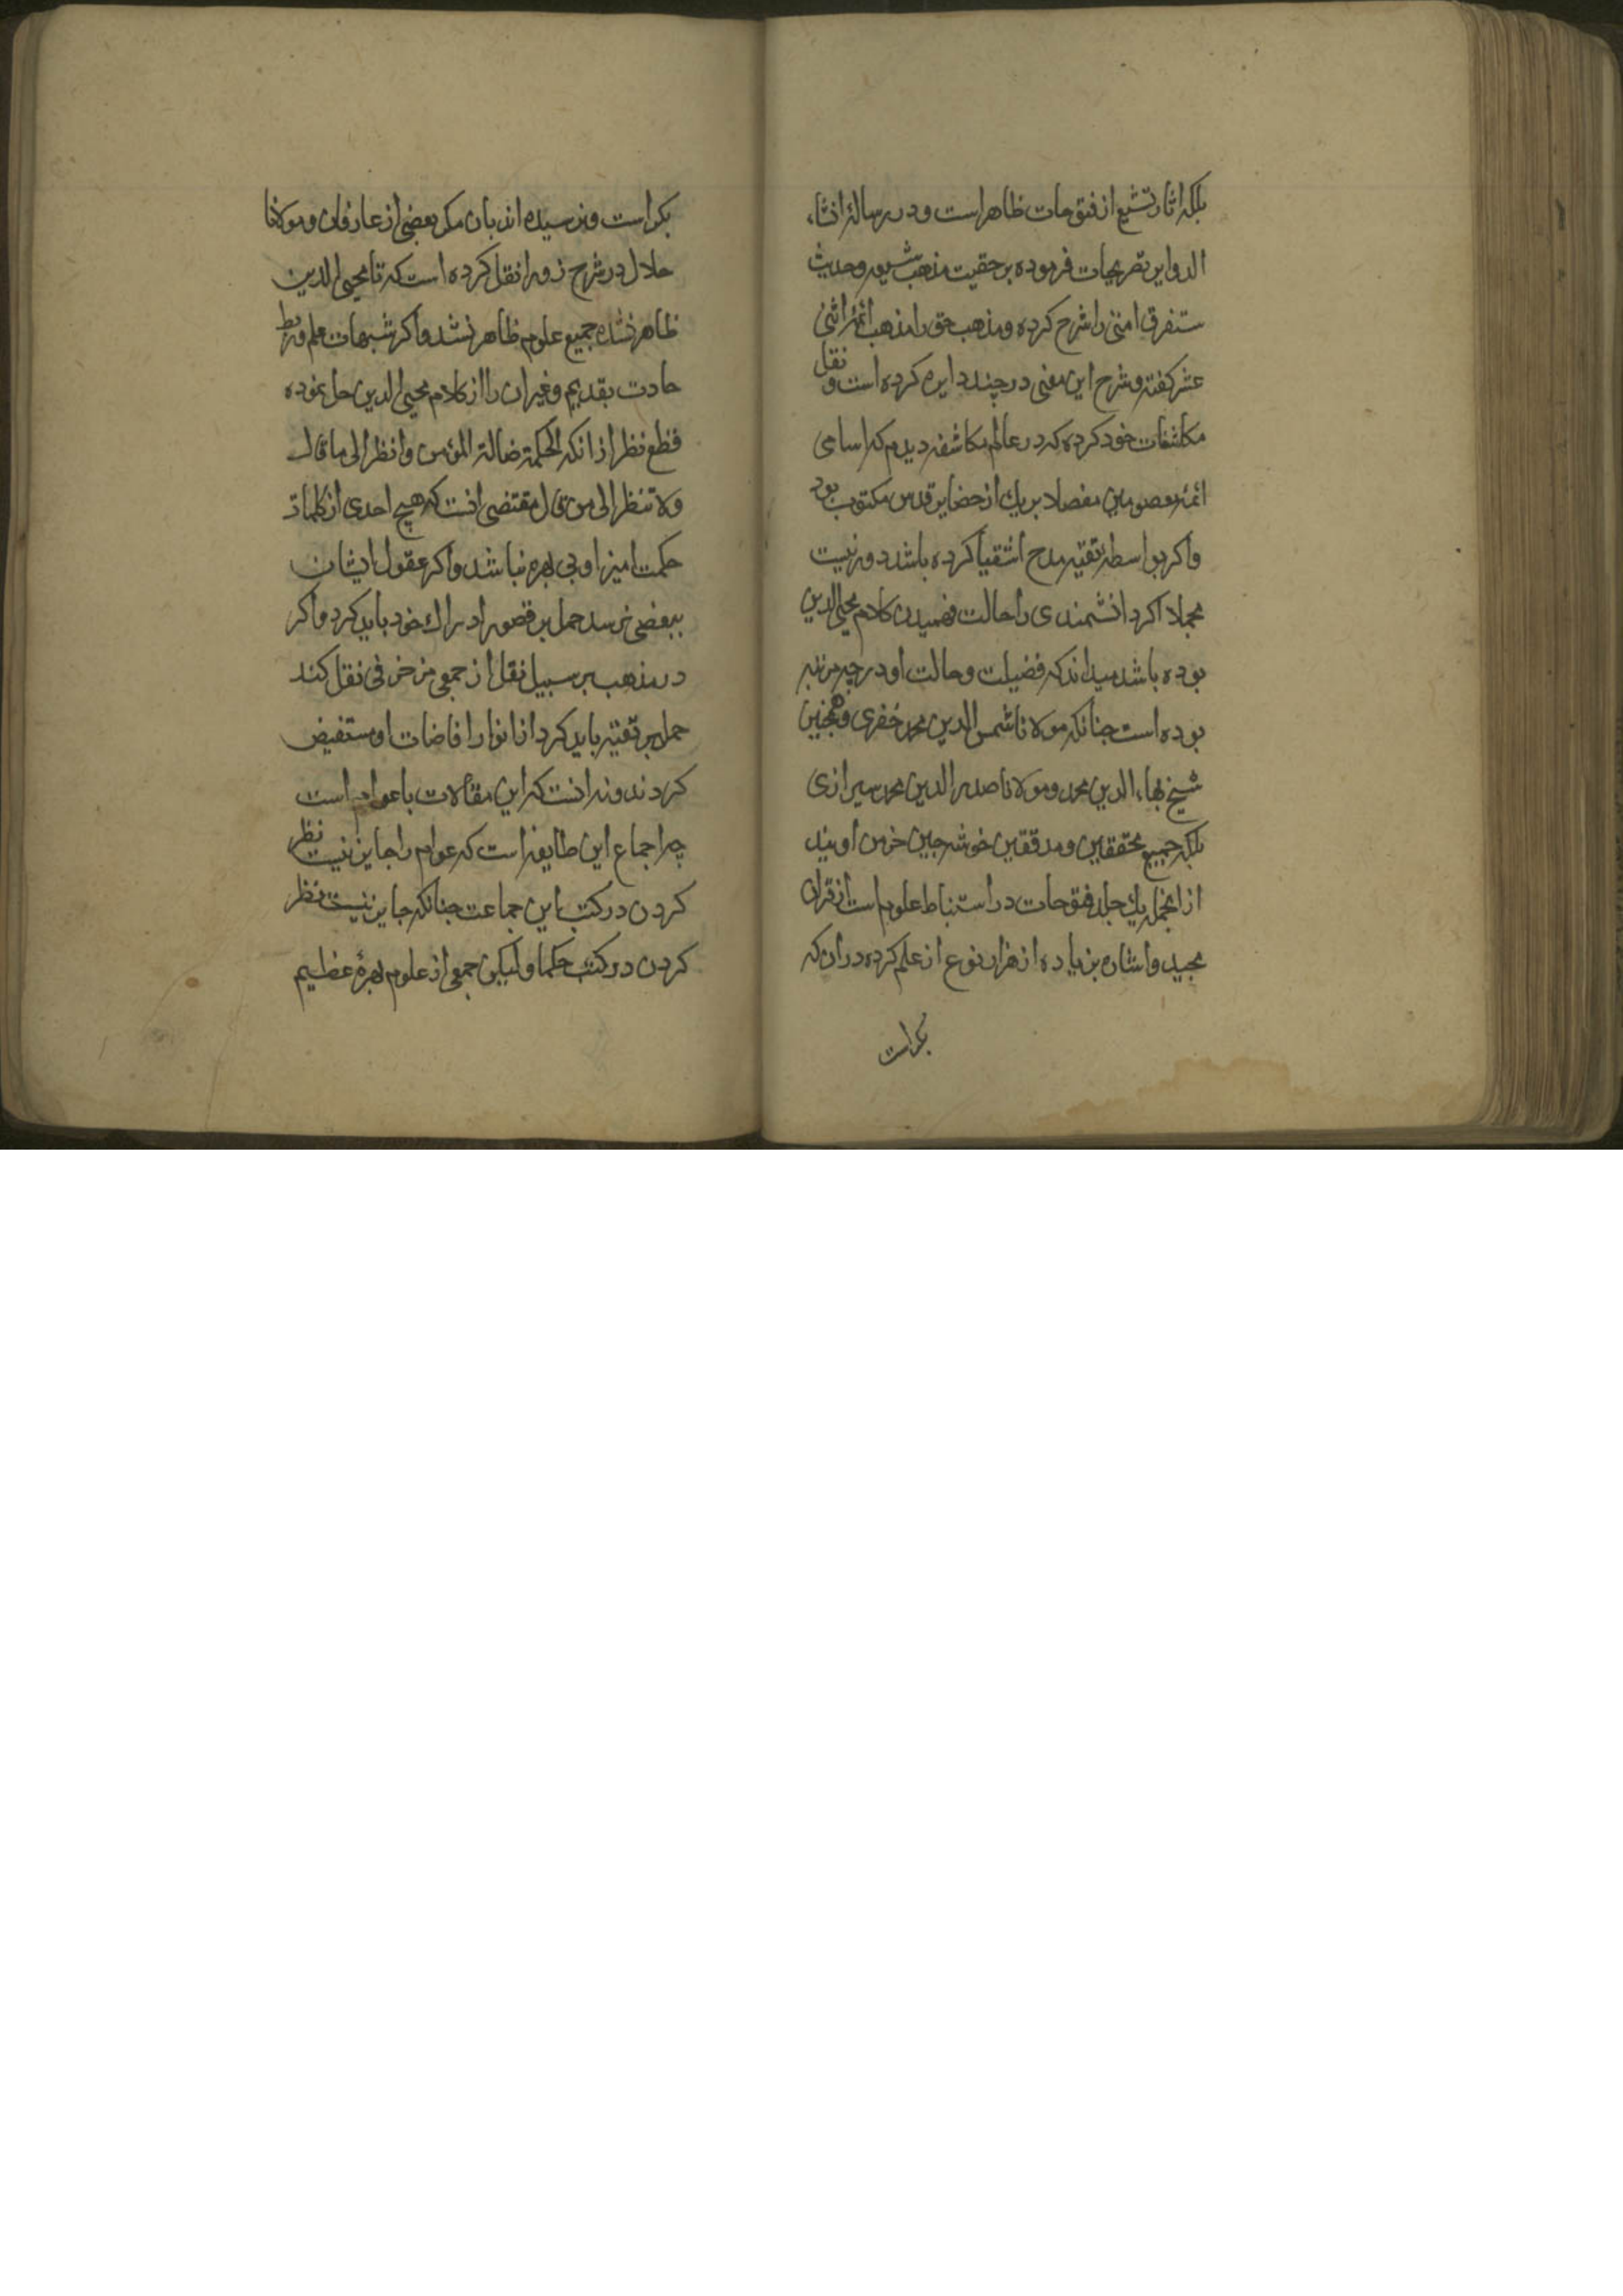 بلکه اثار تشیع از فتوحات ظاهر است و در رساله انشاء
الدوایر تصریحات فرموده بر حقیت مذهب شیعه و حدیث
ستفرق امتی را شرح کرده و مذهب حق را مذهب ائمه اثنی
عشر کفته و شرح این معنی در چند دایره کرده است و نقل
مکاشفات خود کرده که در عالم مکاشفه دیدم که اسامی
ائمه معصومین مفصلا بر یک از حضایر قدس مکتوب بود
و اکر بواسطه تقیه مدح اشقیا کرده باشد دور نیست
مجملا اکر دانشمندی را حالت فهمیدن کلام محیی الدین
بوده باشد میداند که فضیلت و حالت او در چه مرتبه
بوده است جنانکه مولانا شمس الدین محمد خفری و همچنین
شیخ بهاء الدین محمد و مولانا صدر الدین محمد سیرازی
بلکه جمیع محققین و مدققین خوشه جین خرمن اویند
از انجمله یک جلد فتوحات در استنباط علوم است از قران
مجید و اشاره بزیاده از هزار نوع از علم کرده در ان که
بکر است
بکر است و نرسیده اند بان مکر بعضی از عارفان و مولانا
جلال در شرح زورا نقل کرده است که تا محیی الدین
ظاهر نشده جمیع علوم ظاهر نشد و اکر شبهات علم و ربط
حادث بقدیم و غیر ان را از کلام محیی الدین حل نموده
قطع نظر از انکه الحکمة ضالة المؤمن و انظر الی ما قال
و لا تنظر الی من قال مقتضی انست که هیچ احدی از کلمات
حکمت امیز او بی بهره نباشد و اکر عقول ایشان
ببعضی نرسد حمل بر قصور ادراک خود باید کرد و اکر
در مذهب بر سبیل نقل از جمعی مزخرفی نقل کند
حمل بر تقیه باید کرد تا از انوار افاضات او مستفیض
کردند و نه انست که این مقالات با عوام است
چه اجماع این طایفه است که عوام را جایز نیست نظر
کردن در کتب این جماعت جنانکه جایز نیست نظر
کردن در کتب حکما و لیکن جمعی از علوم بهرۀ عظیم